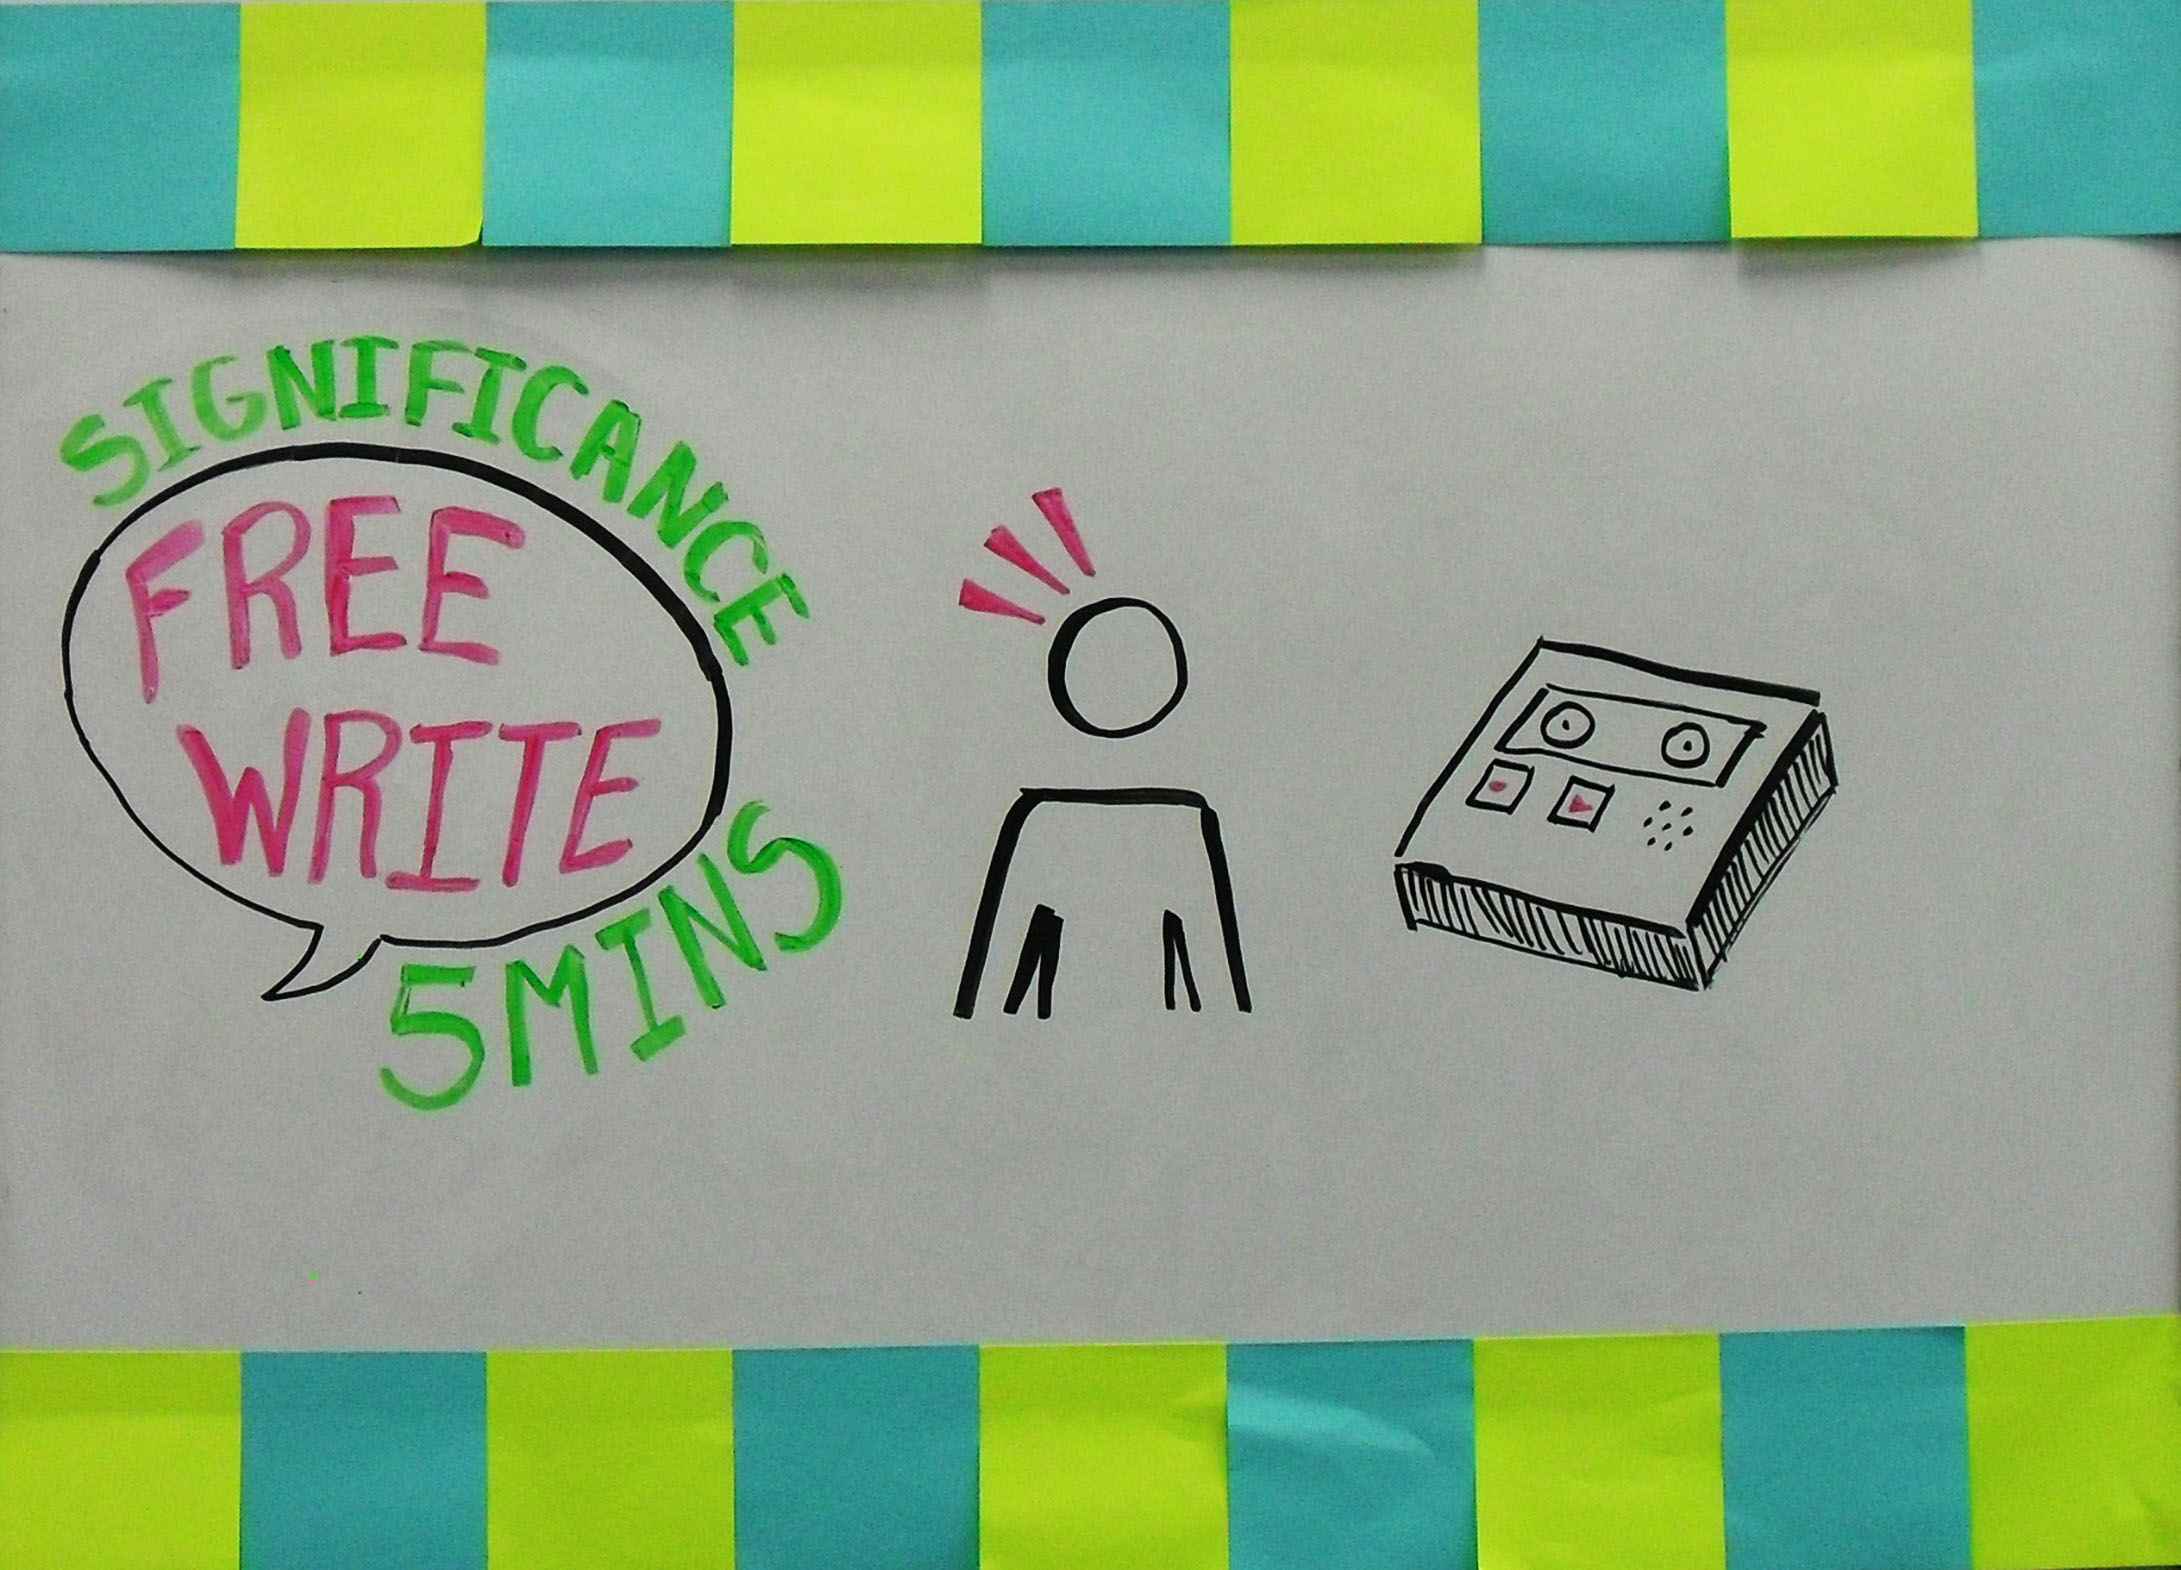 SIGNIFICANCE
FREE
WRITE
5MINS